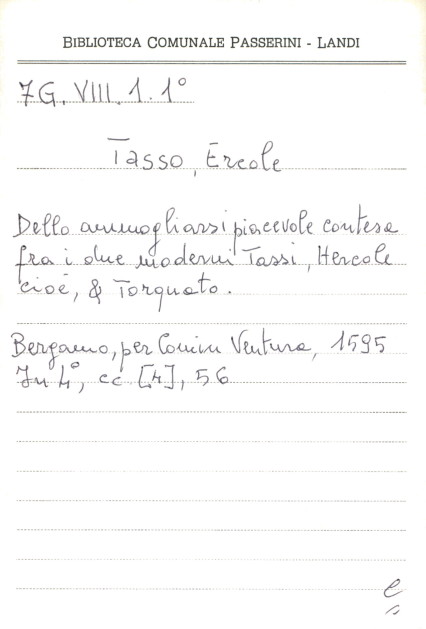 BIBLIOTECA COMUNALE PASSERINI - LANDI
7G. VIII. 1. 1°
Tasso, Ercole
Dello ammogliarsi piacevole contesa
fra i due moderni Tassi, Hercole
cioè, & Torquato.
Bergamo, per Comin Ventura, 1595
In 4°, cc [4], 56